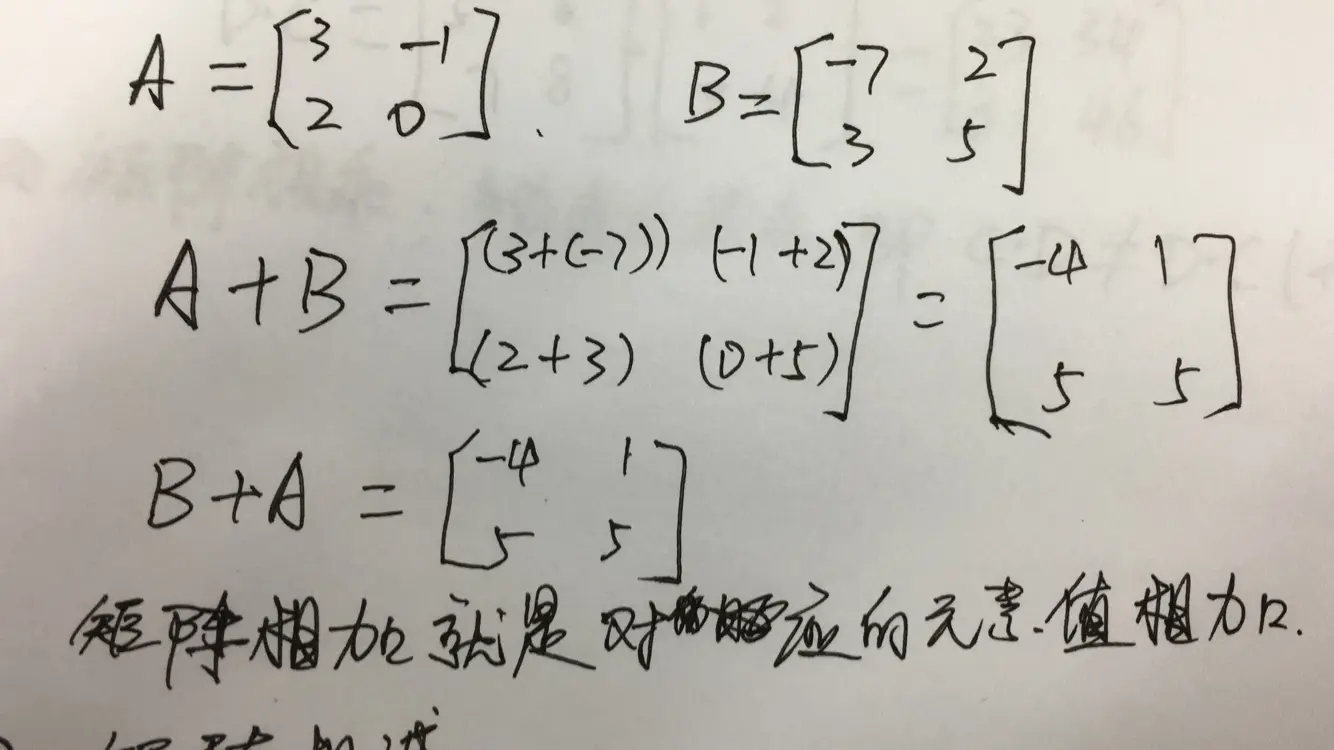 A = [3 -1; 2 0]. B = [-7 2; 3 5]
A + B = [(3+(-7)) (-1+2); (2+3) (0+5)] = [-4 1; 5 5]
B+A = [-4 1; 5 5]
矩阵相加就是对应的元素值相加.